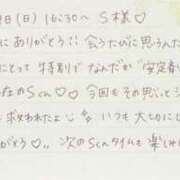 9日(日) 16:30〜 S様♡
にありがとう!! 会うたびに思うんだ
にとって特別でなんだか"安定剤
存在のSさん♡♡ 今回もその思いとシ
求められたよ いつも大切に
がとう♡。。 次のSさんタイムも楽しみ